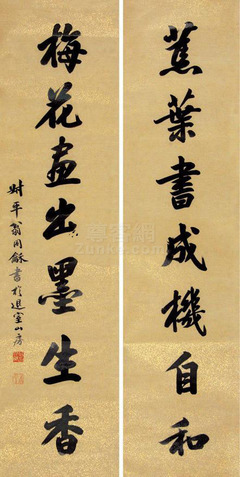 蕉葉書成機自和
梅花畫出墨生香
叔平翁同龢書於退室山房